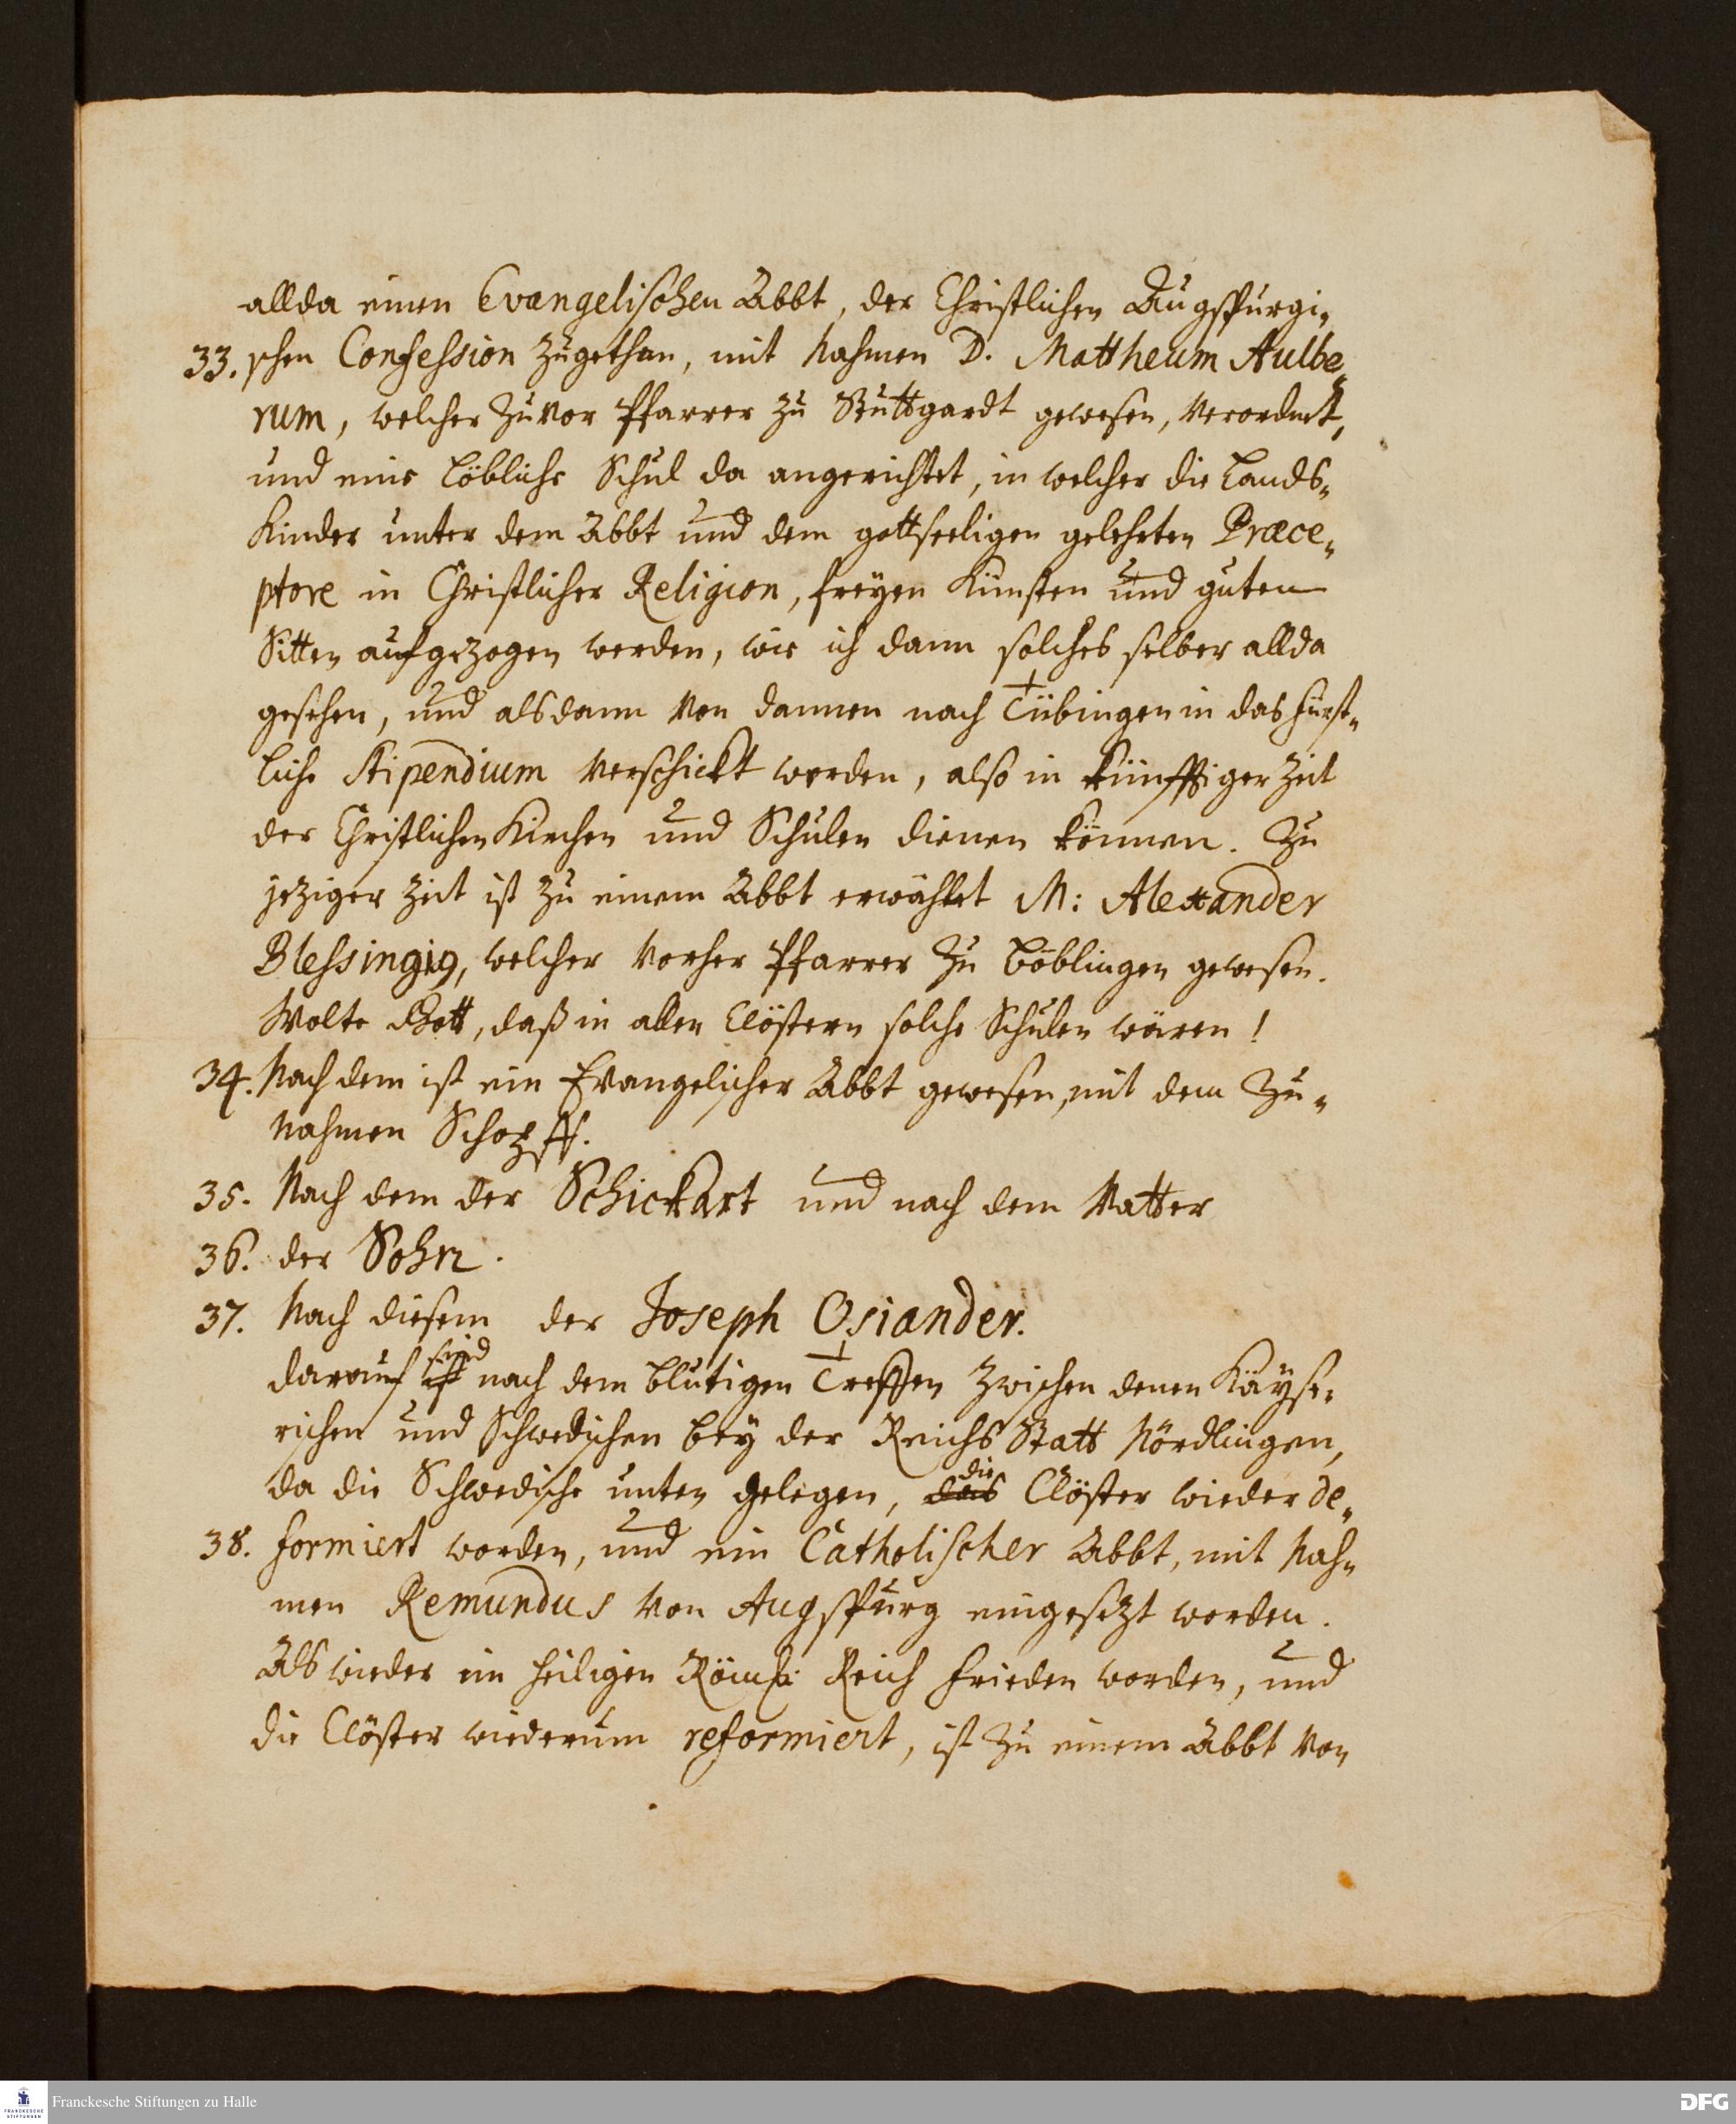 allda einen Evangelischen Abbt, der Christlichen Augspurgi-
33. schen Confession zugethan, mit Nahmen D. Mattheum Aulbe-
rum, welcher zuvor Pfarrer zu Stuttgardt gewesen, verordnet,
und eine löbliche Schul da angerichtet, in welcher die Lands-
Kinder unter dem Abbt und dem gottseeligen gelehrten Præce-
ptore in Christlicher Religion, freyen Künsten und guten
Sitten aufgezogen werden, wie ich dann solches selber allda
gesehen, und alsdann von dannen nach Tübingen in das Fürst-
liche Stipendium verschickt werden, also in künfftiger Zeit
der Christlichen Kirchen und Schulen dienen können. Zu
jeziger Zeit ist zu einem Abbt erwählet M: Alexander
Blessingig, welcher vorher Pfarrer zu Böblingen gewesen.
Wolte Gott, daß in allen Clöstern solche Schulen wären!
34. Nach dem ist ein Evangelicher Abbt gewesen, mit dem Zu-
nahmen Schopff.
35. Nach dem der Schickart und nach dem Vatter
36. der Sohn.
37. Nach diesem der Joseph Osiander.
sind
darauf ist nach dem blutigen Treffen zwischen denen Käyse-
rischen und Schwedischen bey der Reichs Statt Nördlingen,
die
da die Schwedische unten gelegen, das Clöster wieder de-
38. formiert worden, und ein Catholischer Abbt, mit Nah-
men Remundus von Augspurg eingesezt worden.
Als wieder im heiligen Römsch: Reich Frieden worden, und
die Clöster wiederum reformiert, ist zu einem Abbt von
Franckesche Stiftungen zu Halle
FRANCKESCHE
STIFTUNGEN
DFG